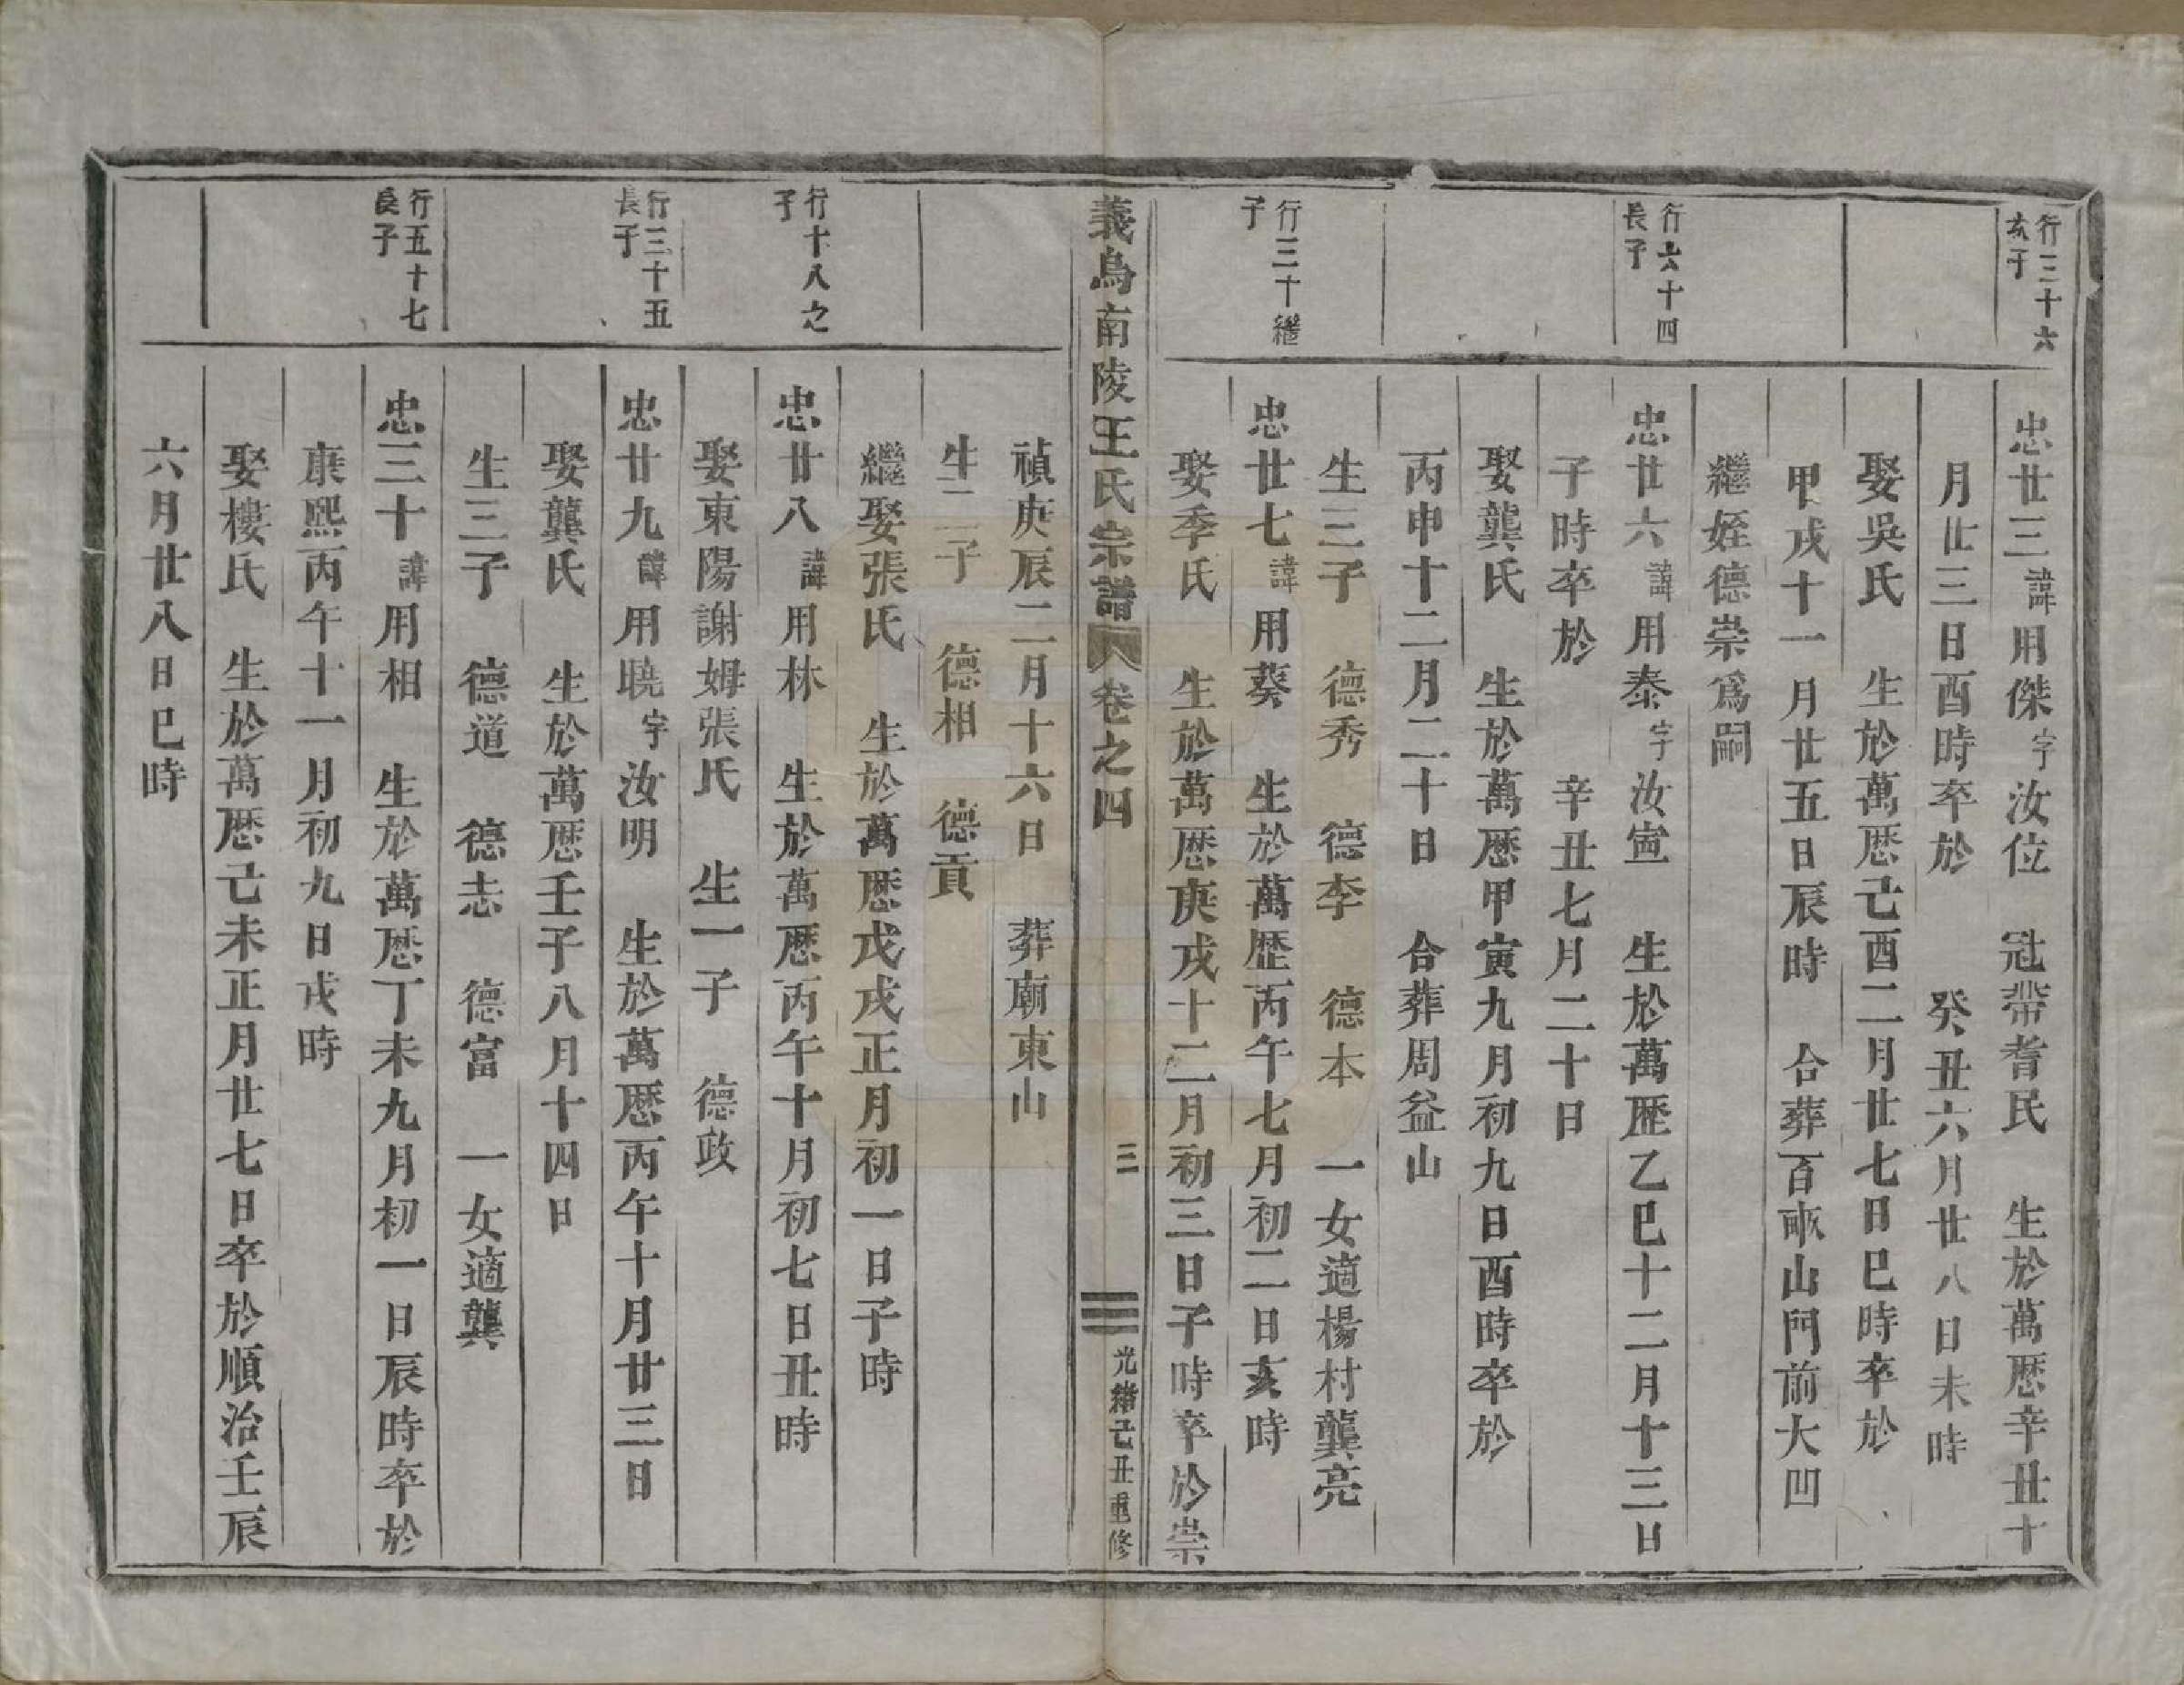 行三十六
次子
忠廿三諱用傑字汝位　冠帶耆民　生於萬歷辛丑十
月廿三日酉時卒於　　癸丑六月廿八日未時
娶吳氏　生於萬歷己酉二月廿七日巳時卒於
甲戌十一月廿五日辰時　合葬百畝山門前大凹
繼姪德崇爲嗣
行六十四
長子
忠廿六諱用泰字汝寅　生於萬歷乙巳十二月十三日
子時卒於　　辛丑七月二十日
娶龔氏　生於萬歷甲寅九月初九日酉時卒於
丙申十二月二十日　合葬周益山
生三子　德秀　德李　德本　一女適楊村龔亮
行三十繼
子
忠廿七諱用葵　生於萬歷丙午七月初二日亥時
娶季氏　生於萬歷庚戌十二月初三日子時卒於崇
義烏南陵王氏宗譜　卷之四　三　光緒己丑重修
禎庚辰二月十六日　葬廟東山
生二子　德相　德貢
繼娶張氏　生於萬歷戊戌正月初一日子時
行十八之
子
忠廿八諱用林　生於萬歷丙午十月初七日丑時
娶東陽謝姆張氏　生一子　德政
行三十五
長子
忠廿九諱用曉字汝明　生於萬歷丙午十月廿三日
娶龔氏　生於萬歷壬子八月十四日
生三子　德道　德志　德富　一女適龔
行五十七
長子
忠三十諱用相　生於萬歷丁未九月初一日辰時卒於
康熙丙午十一月初九日戌時
娶樓氏　生於萬歷己未正月廿七日卒於順治壬辰
六月廿八日巳時